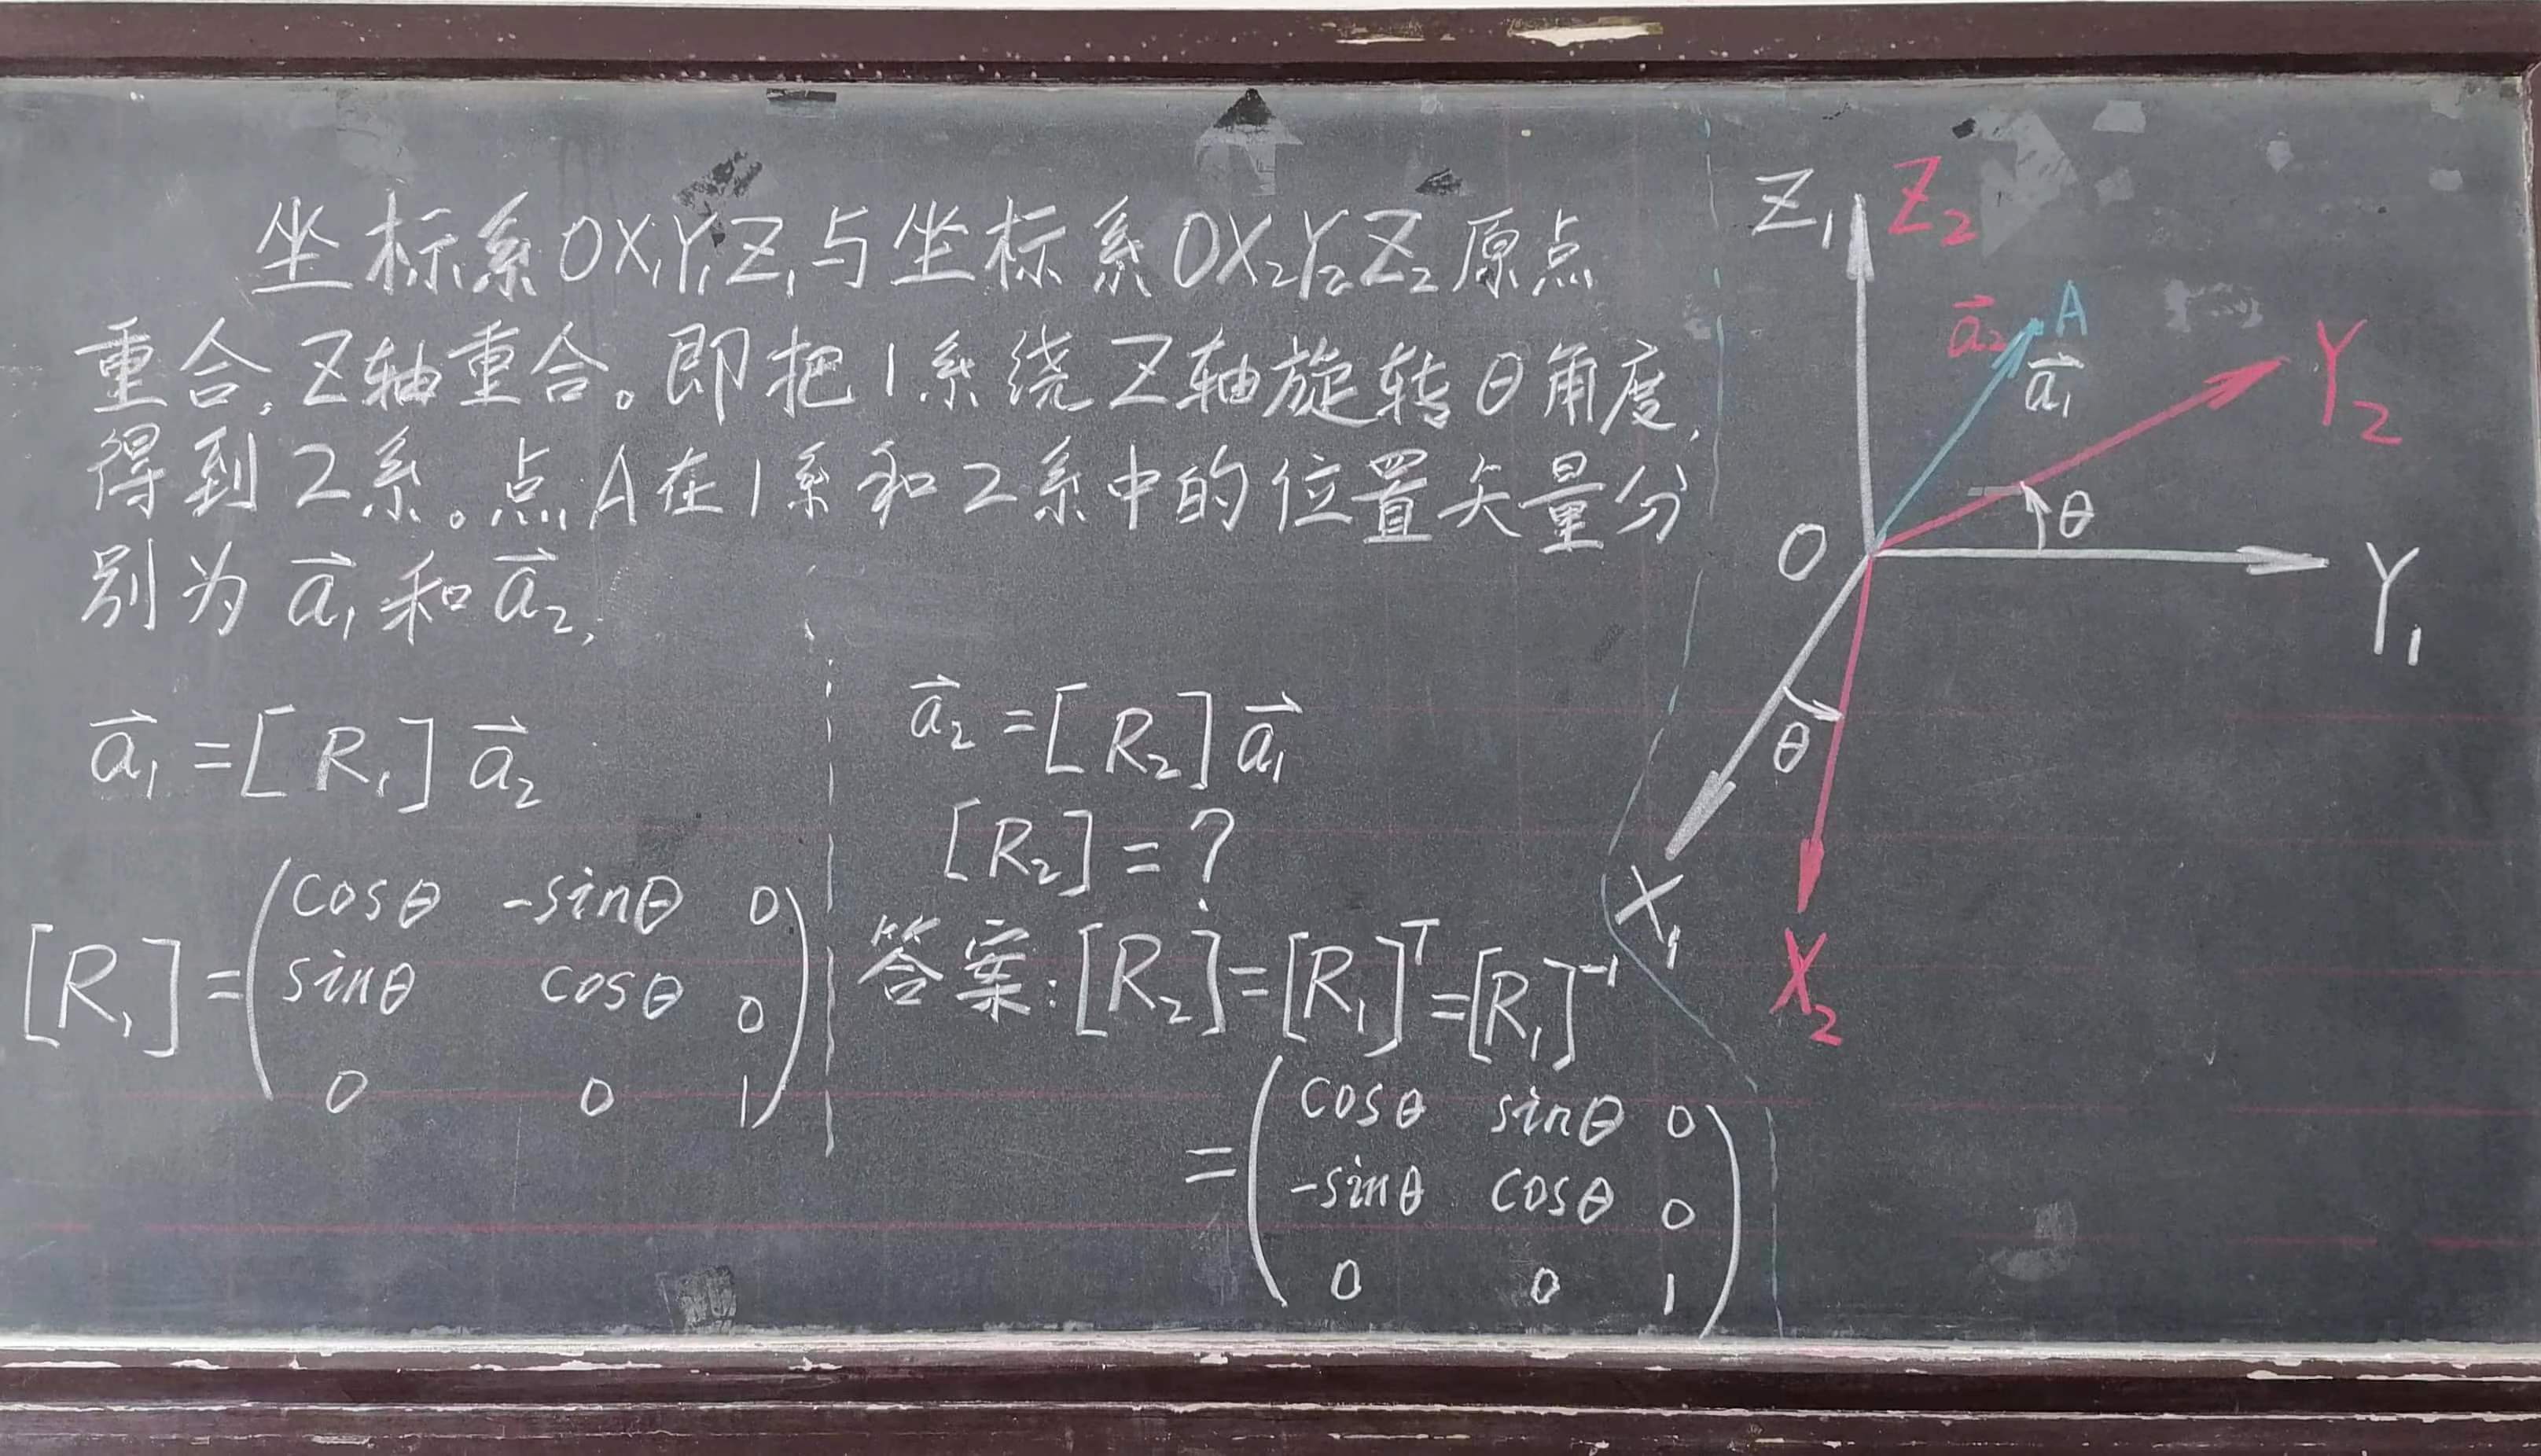 坐标系OX₁Y₁Z₁与坐标系OX₂Y₂Z₂原点
重合,Z轴重合。即把1系绕Z轴旋转θ角度,
得到2系。点A在1系和2系中的位置矢量分
别为 a⃗₁和a⃗₂,
a⃗₁=[R₁]a⃗₂
[R₁]=
cosθ -sinθ 0
sinθ cosθ 0
0 0 1
a⃗₂=[R₂]a⃗₁
[R₂]=?
答案:[R₂]=[R₁]ᵀ=[R₁]⁻¹
=
cosθ sinθ 0
-sinθ cosθ 0
0 0 1
Z₁ Z₂
a⃗₂ A
a⃗₁
Y₂
θ
O
Y₁
θ
X₁
X₂